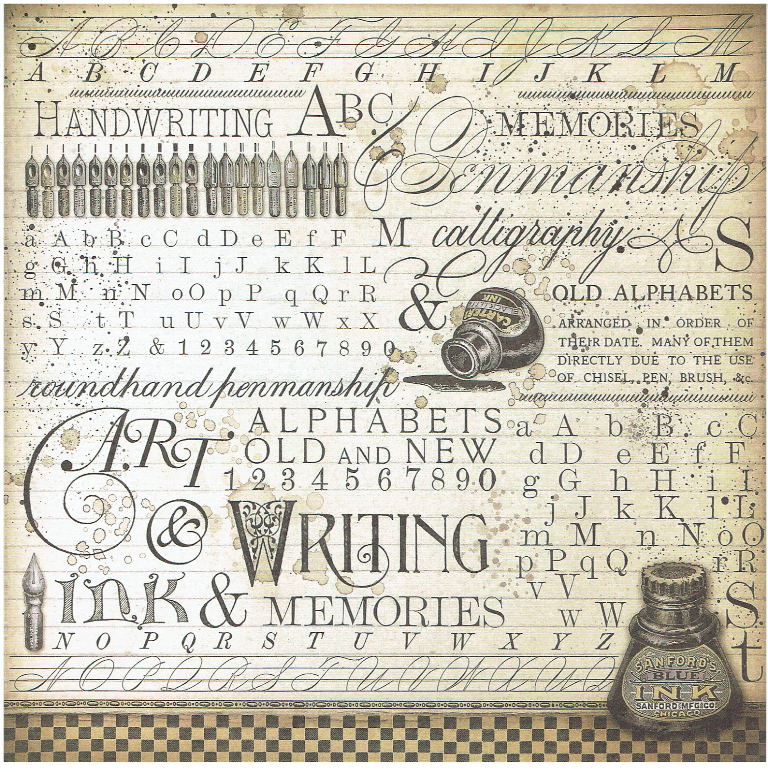 A B C D E F G H I J K L M
A B C D E F G H I J K L M
HANDWRITING ABC MEMORIES
Penmanship
a A b B c C d D e E f F M calligraphy S
g G h H i I j J k K l L
m M n N o O p P q Q r R & OLD ALPHABETS
s S t T u U v V w W x X
y Y z Z & 1 2 3 4 5 6 7 8 9 0
CARTER'S
INK
ARRANGED IN ORDER OF
THEIR DATE. MANY OF THEM
DIRECTLY DUE TO THE USE
OF CHISEL, PEN, BRUSH, &c.
roundhand penmanship
ART
ALPHABETS
OLD AND NEW
1 2 3 4 5 6 7 8 9 0
& WRITING
INK & MEMORIES
a A b B c C
d D e E f F
g G h H i I
j J k K l L
m M n N o O
p P q Q r R
v V S
w W t
N O P Q R S T U V W X Y Z
N O P Q R S T U V W X U
SANFORD'S
BLUE
INK
SANFORD MFG. CO.
CHICAGO